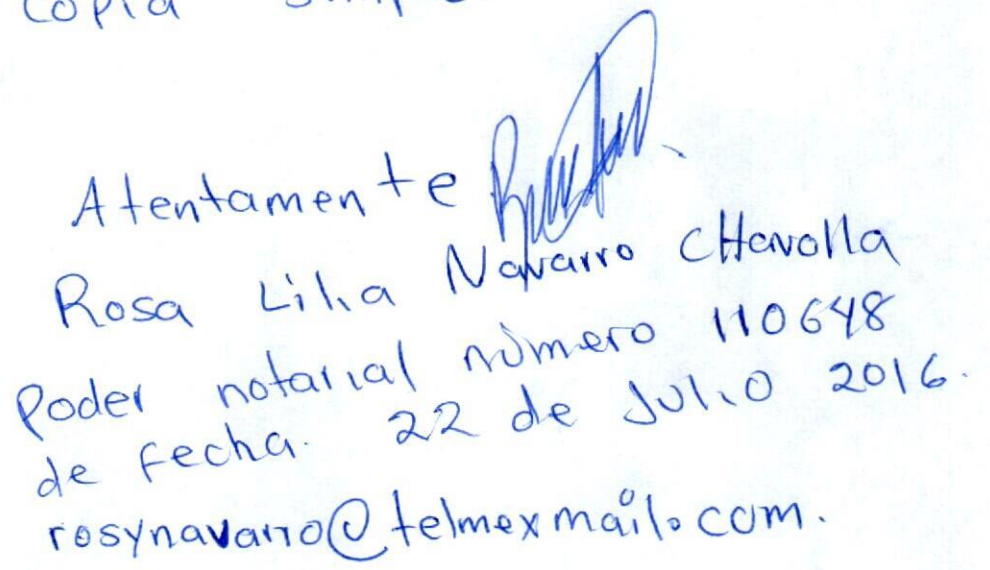 copia
Atentamente
Rosa Lilia Navarro CHavolla
Poder notarial número 110648
de fecha. 22 de Julio 2016.
rosynavarro@telmexmail.com.